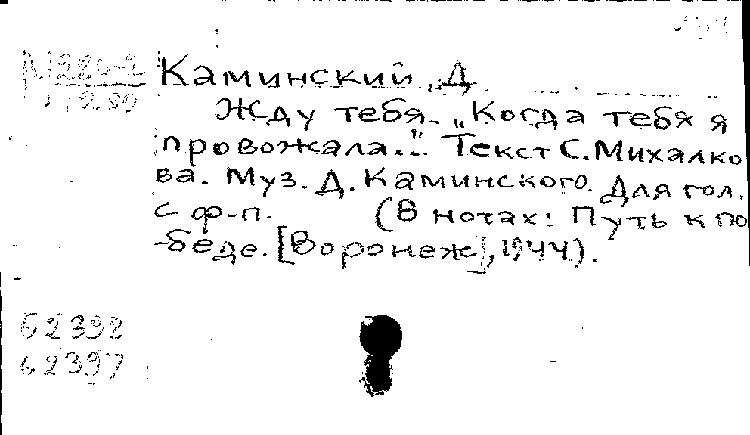 Каминский, Д.
Жду тебя. „Когда тебя я
провожала..." Текст С. Михалко
ва. Муз. Д. Каминского. Для гол.
с ф-п. (В нотах: Путь к по
беде. [Воронеж], 1944).
62392
62397